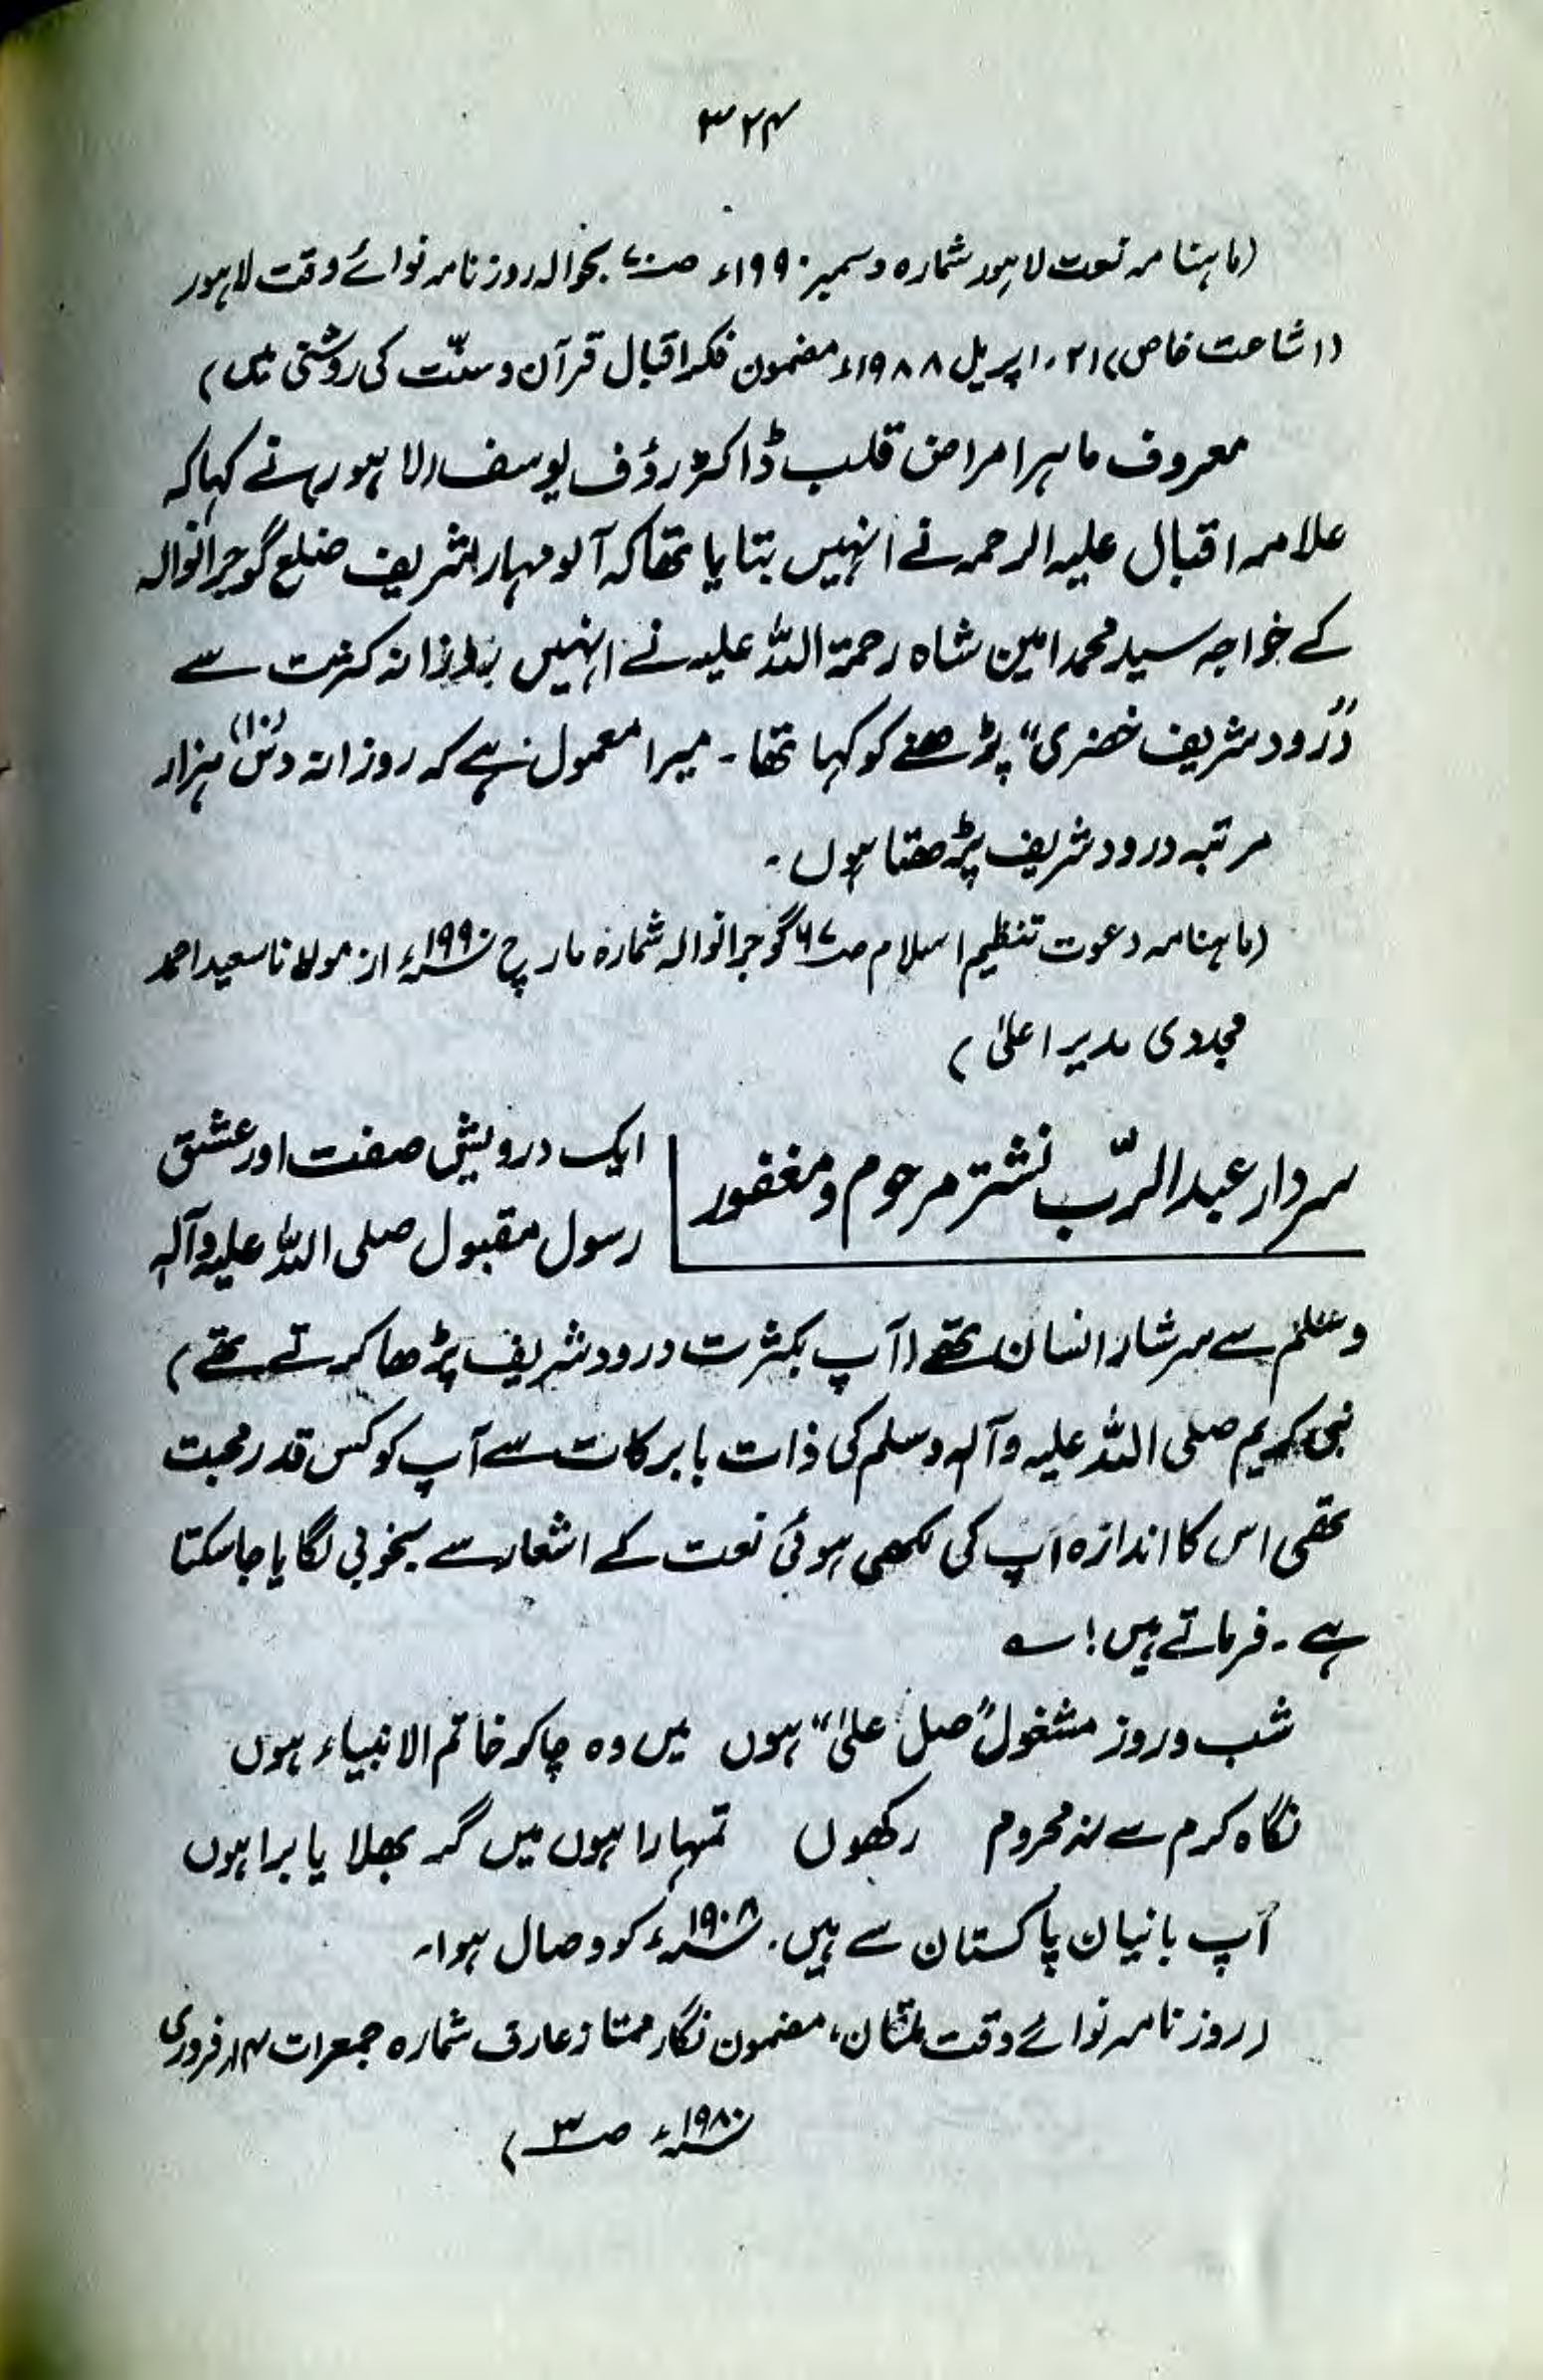 ۳۲۴
(ماہنامہ نعت لاہور شمارہ دسمبر ۱۹۹۰ء ص۷۰ بحوالہ روزنامہ نوائے وقت لاہور
(اشاعت خاص) ۲۱، اپریل ۱۹۸۸ء مضمون فکر اقبال قرآن و سنّت کی روشنی میں)
معروف ماہر امراض قلب ڈاکٹر رؤف یوسف (لاہور) نے کہا کہ
علامہ اقبال علیہ الرحمہ نے انہیں بتایا تھا کہ آلو مہار شریف ضلع گوجرانوالہ
کے خواجہ سید محمد امین شاہ رحمۃ اللہ علیہ نے انہیں روزانہ کثرت سے
”درود شریف خضری“ پڑھنے کو کہا تھا۔ میرا معمول ہے کہ روزانہ دس (۱۰) ہزار
مرتبہ درود شریف پڑھتا ہوں۔
(ماہنامہ دعوت تنظیم اسلام ص۶۷ گوجرانوالہ شمارہ مارچ ۱۹۹۰ء از مولانا سعید احمد
مجددی مدیر اعلیٰ)
سردار عبدالرّب نشتر مرحوم و مغفور
ایک درویش صفت اور عشق
رسول مقبول صلی اللہ علیہ وآلہ
وسلم سے سرشار انسان تھے (آپ بکثرت درود شریف پڑھا کرتے تھے)
نبی کریم صلی اللہ علیہ وآلہ وسلم کی ذات بابرکات سے آپ کو کس قدر محبت
تھی اس کا اندازہ آپ کی لکھی ہوئی نعت کے اشعار سے بخوبی لگایا جا سکتا
ہے۔ فرماتے ہیں! ؎
شب و روز مشغول ”صل علیٰ“ ہوں میں وہ چاکر خاتم الانبیاء ہوں
نگاہ کرم سے نہ محروم رکھوں تمہارا ہوں میں گر بھلا یا برا ہوں
آپ بانیان پاکستان سے ہیں۔ ۱۹۰۸ء کو وصال ہوا۔
(روزنامہ نوائے وقت ملتان، مضمون نگار ممتاز عارف شمارہ جمعرات ۱۴ فروری
۱۹۸۰ء ص۳)